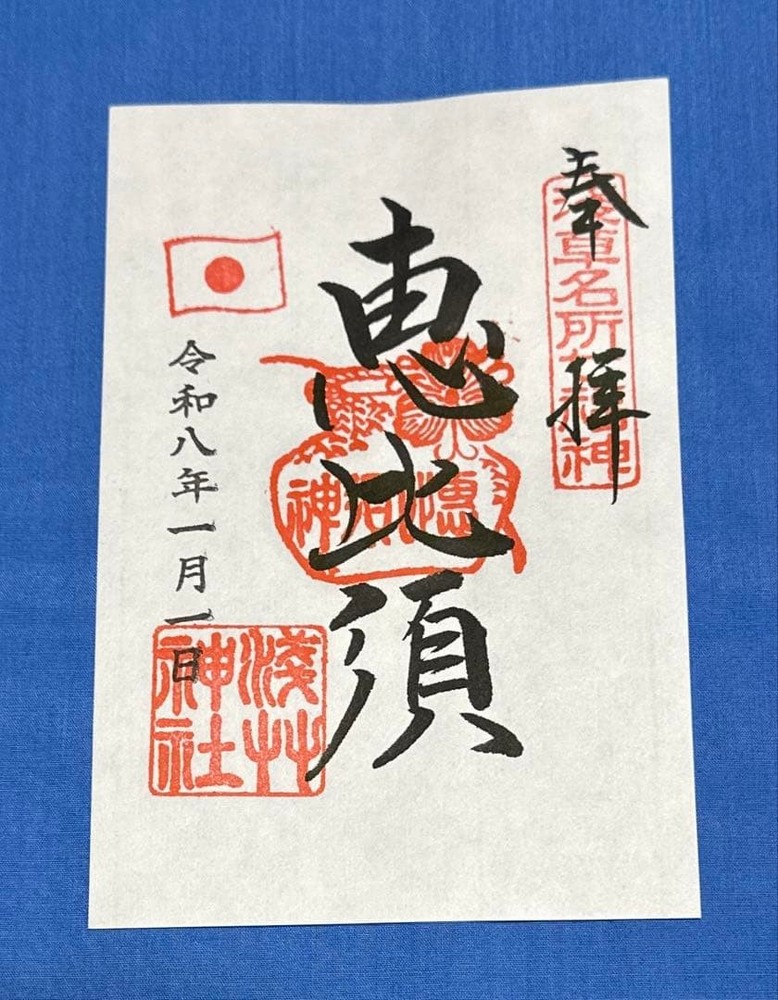 奉拝
浅草名所七福神
恵比須
恵比須神
令和八年一月一日
淺草神社